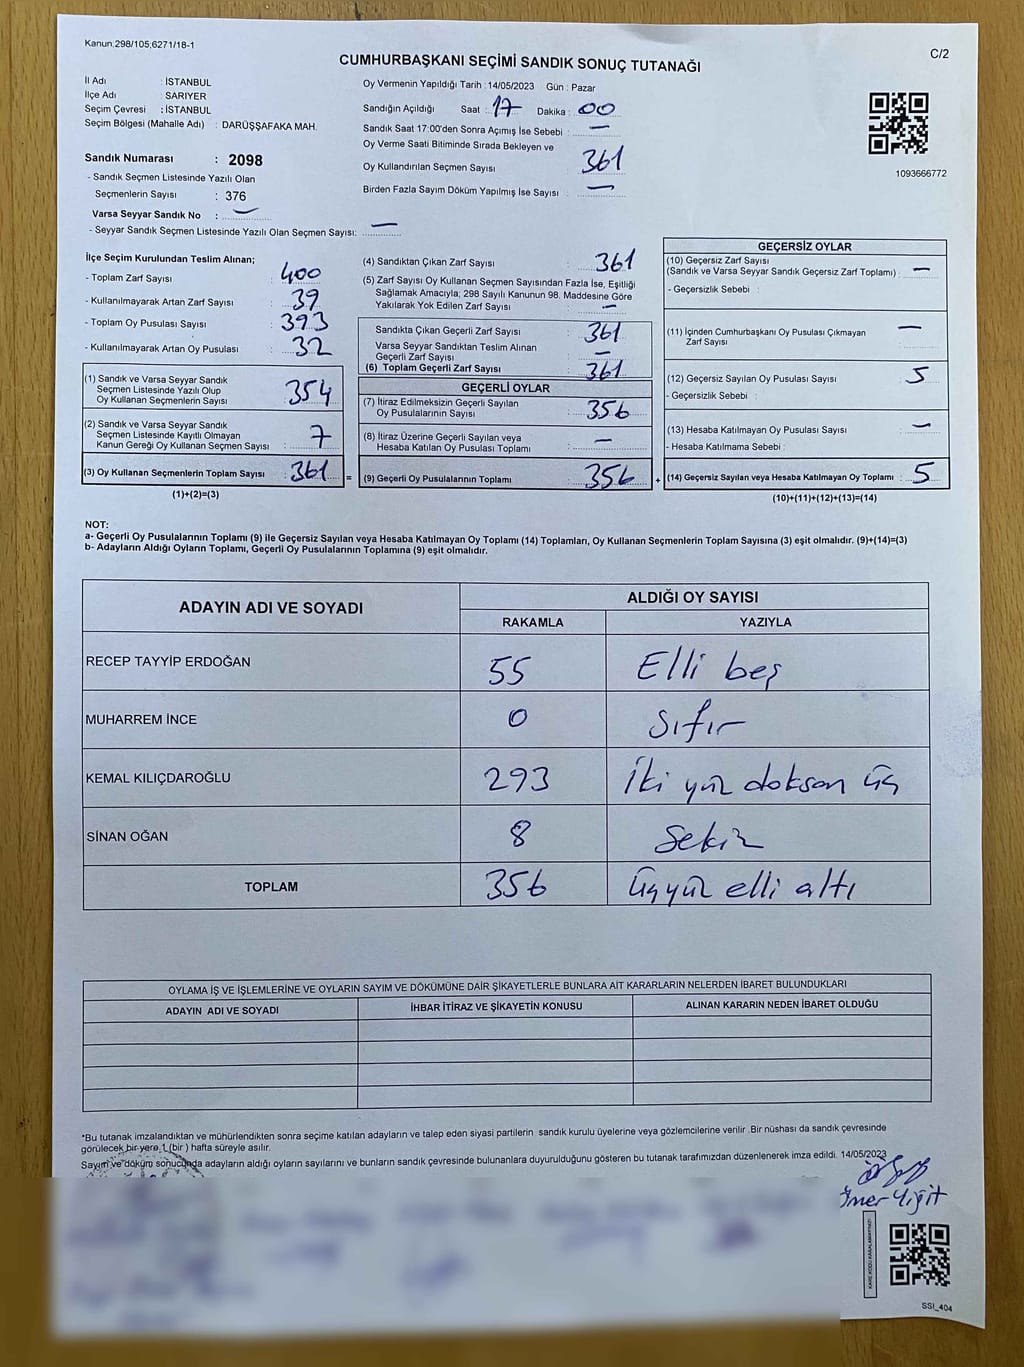 Kanun;298/105;6271/18-1
C/2
CUMHURBAŞKANI SEÇİMİ SANDIK SONUÇ TUTANAĞI
İl Adı : İSTANBUL
İlçe Adı : SARIYER
Seçim Çevresi : İSTANBUL
Seçim Bölgesi (Mahalle Adı) : DARÜŞŞAFAKA MAH.
Sandık Numarası : 2098
- Sandık Seçmen Listesinde Yazılı Olan
Seçmenlerin Sayısı : 376
Varsa Seyyar Sandık No : —
- Seyyar Sandık Seçmen Listesinde Yazılı Olan Seçmen Sayısı: —
Oy Vermenin Yapıldığı Tarih : 14/05/2023 Gün : Pazar
Sandığın Açıldığı Saat : 17 Dakika : 00
Sandık Saat 17:00'den Sonra Açımış İse Sebebi : —
Oy Verme Saati Bitiminde Sırada Bekleyen ve
Oy Kullandırılan Seçmen Sayısı : 361
Birden Fazla Sayım Döküm Yapılmış İse Sayısı : —
1093666772
İlçe Seçim Kurulundan Teslim Alınan;
- Toplam Zarf Sayısı : 400
- Kullanılmayarak Artan Zarf Sayısı : 39
- Toplam Oy Pusulası Sayısı : 393
- Kullanılmayarak Artan Oy Pusulası : 32
(1) Sandık ve Varsa Seyyar Sandık
Seçmen Listesinde Yazılı Olup
Oy Kullanan Seçmenlerin Sayısı : 354
(2) Sandık ve Varsa Seyyar Sandık
Seçmen Listesinde Kayıtlı Olmayan
Kanun Gereği Oy Kullanan Seçmen Sayısı : 7
(3) Oy Kullanan Seçmenlerin Toplam Sayısı : 361
(1)+(2)=(3)
=
(4) Sandıktan Çıkan Zarf Sayısı : 361
(5) Zarf Sayısı Oy Kullanan Seçmen Sayısından Fazla İse, Eşitliği
Sağlamak Amacıyla; 298 Sayılı Kanunun 98. Maddesine Göre
Yakılarak Yok Edilen Zarf Sayısı : —
Sandıkta Çıkan Geçerli Zarf Sayısı : 361
Varsa Seyyar Sandıktan Teslim Alınan
Geçerli Zarf Sayısı : —
(6) Toplam Geçerli Zarf Sayısı : 361
GEÇERLİ OYLAR
(7) İtiraz Edilmeksizin Geçerli Sayılan
Oy Pusulalarının Sayısı : 356
(8) İtiraz Üzerine Geçerli Sayılan veya
Hesaba Katılan Oy Pusulası Toplamı : —
(9) Geçerli Oy Pusulalarının Toplamı : 356
+
GEÇERSİZ OYLAR
(10) Geçersiz Zarf Sayısı
(Sandık ve Varsa Seyyar Sandık Geçersiz Zarf Toplamı) : —
- Geçersizlik Sebebi :
(11) İçinden Cumhurbaşkanı Oy Pusulası Çıkmayan : —
Zarf Sayısı
(12) Geçersiz Sayılan Oy Pusulası Sayısı : 5
- Geçersizlik Sebebi :
(13) Hesaba Katılmayan Oy Pusulası Sayısı : —
- Hesaba Katılmama Sebebi :
(14) Geçersiz Sayılan veya Hesaba Katılmayan Oy Toplamı : 5
(10)+(11)+(12)+(13)=(14)
NOT:
a- Geçerli Oy Pusulalarının Toplamı (9) ile Geçersiz Sayılan veya Hesaba Katılmayan Oy Toplamı (14) Toplamları, Oy Kullanan Seçmenlerin Toplam Sayısına (3) eşit olmalıdır. (9)+(14)=(3)
b- Adayların Aldığı Oyların Toplamı, Geçerli Oy Pusulalarının Toplamına (9) eşit olmalıdır.
ADAYIN ADI VE SOYADI
ALDIĞI OY SAYISI
RAKAMLA YAZIYLA
RECEP TAYYİP ERDOĞAN 55 Elli beş
MUHARREM İNCE 0 Sıfır
KEMAL KILIÇDAROĞLU 293 İki yüz doksan üç
SİNAN OĞAN 8 Sekiz
TOPLAM 356 Üçyüz elli altı
OYLAMA İŞ VE İŞLEMLERİNE VE OYLARIN SAYIM VE DÖKÜMÜNE DAİR ŞİKAYETLERLE BUNLARA AİT KARARLARIN NELERDEN İBARET BULUNDUKLARI
ADAYIN ADI VE SOYADI İHBAR İTİRAZ VE ŞİKAYETİN KONUSU ALINAN KARARIN NEDEN İBARET OLDUĞU
*Bu tutanak imzalandıktan ve mühürlendikten sonra seçime katılan adayların ve talep eden siyasi partilerin sandık kurulu üyelerine veya gözlemcilerine verilir .Bir nüshası da sandık çevresinde
görülecek bir yere 1 (bir ) hafta süreyle asılır.
Sayım ve döküm sonucunda adayların aldığı oyların sayılarını ve bunların sandık çevresinde bulunanlara duyurulduğunu gösteren bu tutanak tarafımızdan düzenlenerek imza edildi. 14/05/2023
Ömer Yiğit
SSI_404